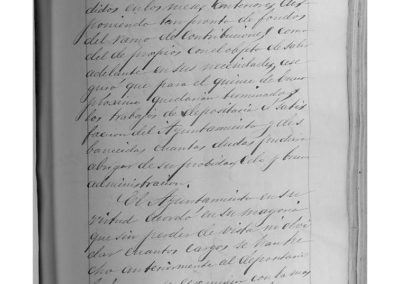 didos en los meses anteriores, dis-
poniendo tan pronto de fondos
del ramo de contribuciones y como
del de propios con el objeto de salir
adelante en sus necesidades, ase-
guró que para el quince de Enero
próximo quedarían terminados
los trabajos de depositaría á satis-
facion del Ayuntamiento y des-
banecidas cuantas dudas pudiera
abrigar de su probidad, celo y buena
administracion.
El Ayuntamiento en su
virtud acordó en su mayoría
que sin perder de vista ni olvi-
dar cuantos cargos se han he-
cho anteriormente al depositario
con la mas